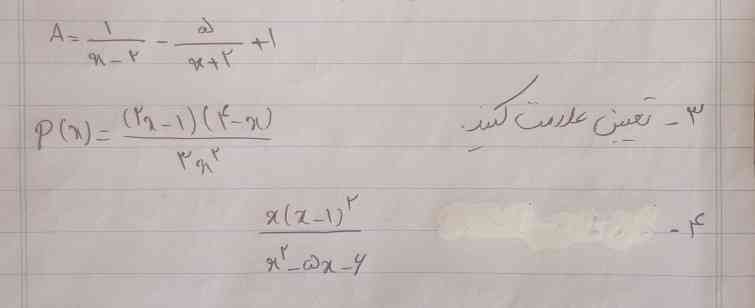 A = ۱/(x-۲) - ۵/(x+۲) + ۱
۳- تعیین علامت کنید.
P(x) = (۲x-۱)(۴-x)/۳x^۲
۴-
x(x-۱)^۲/(x^۲-۵x-۶)